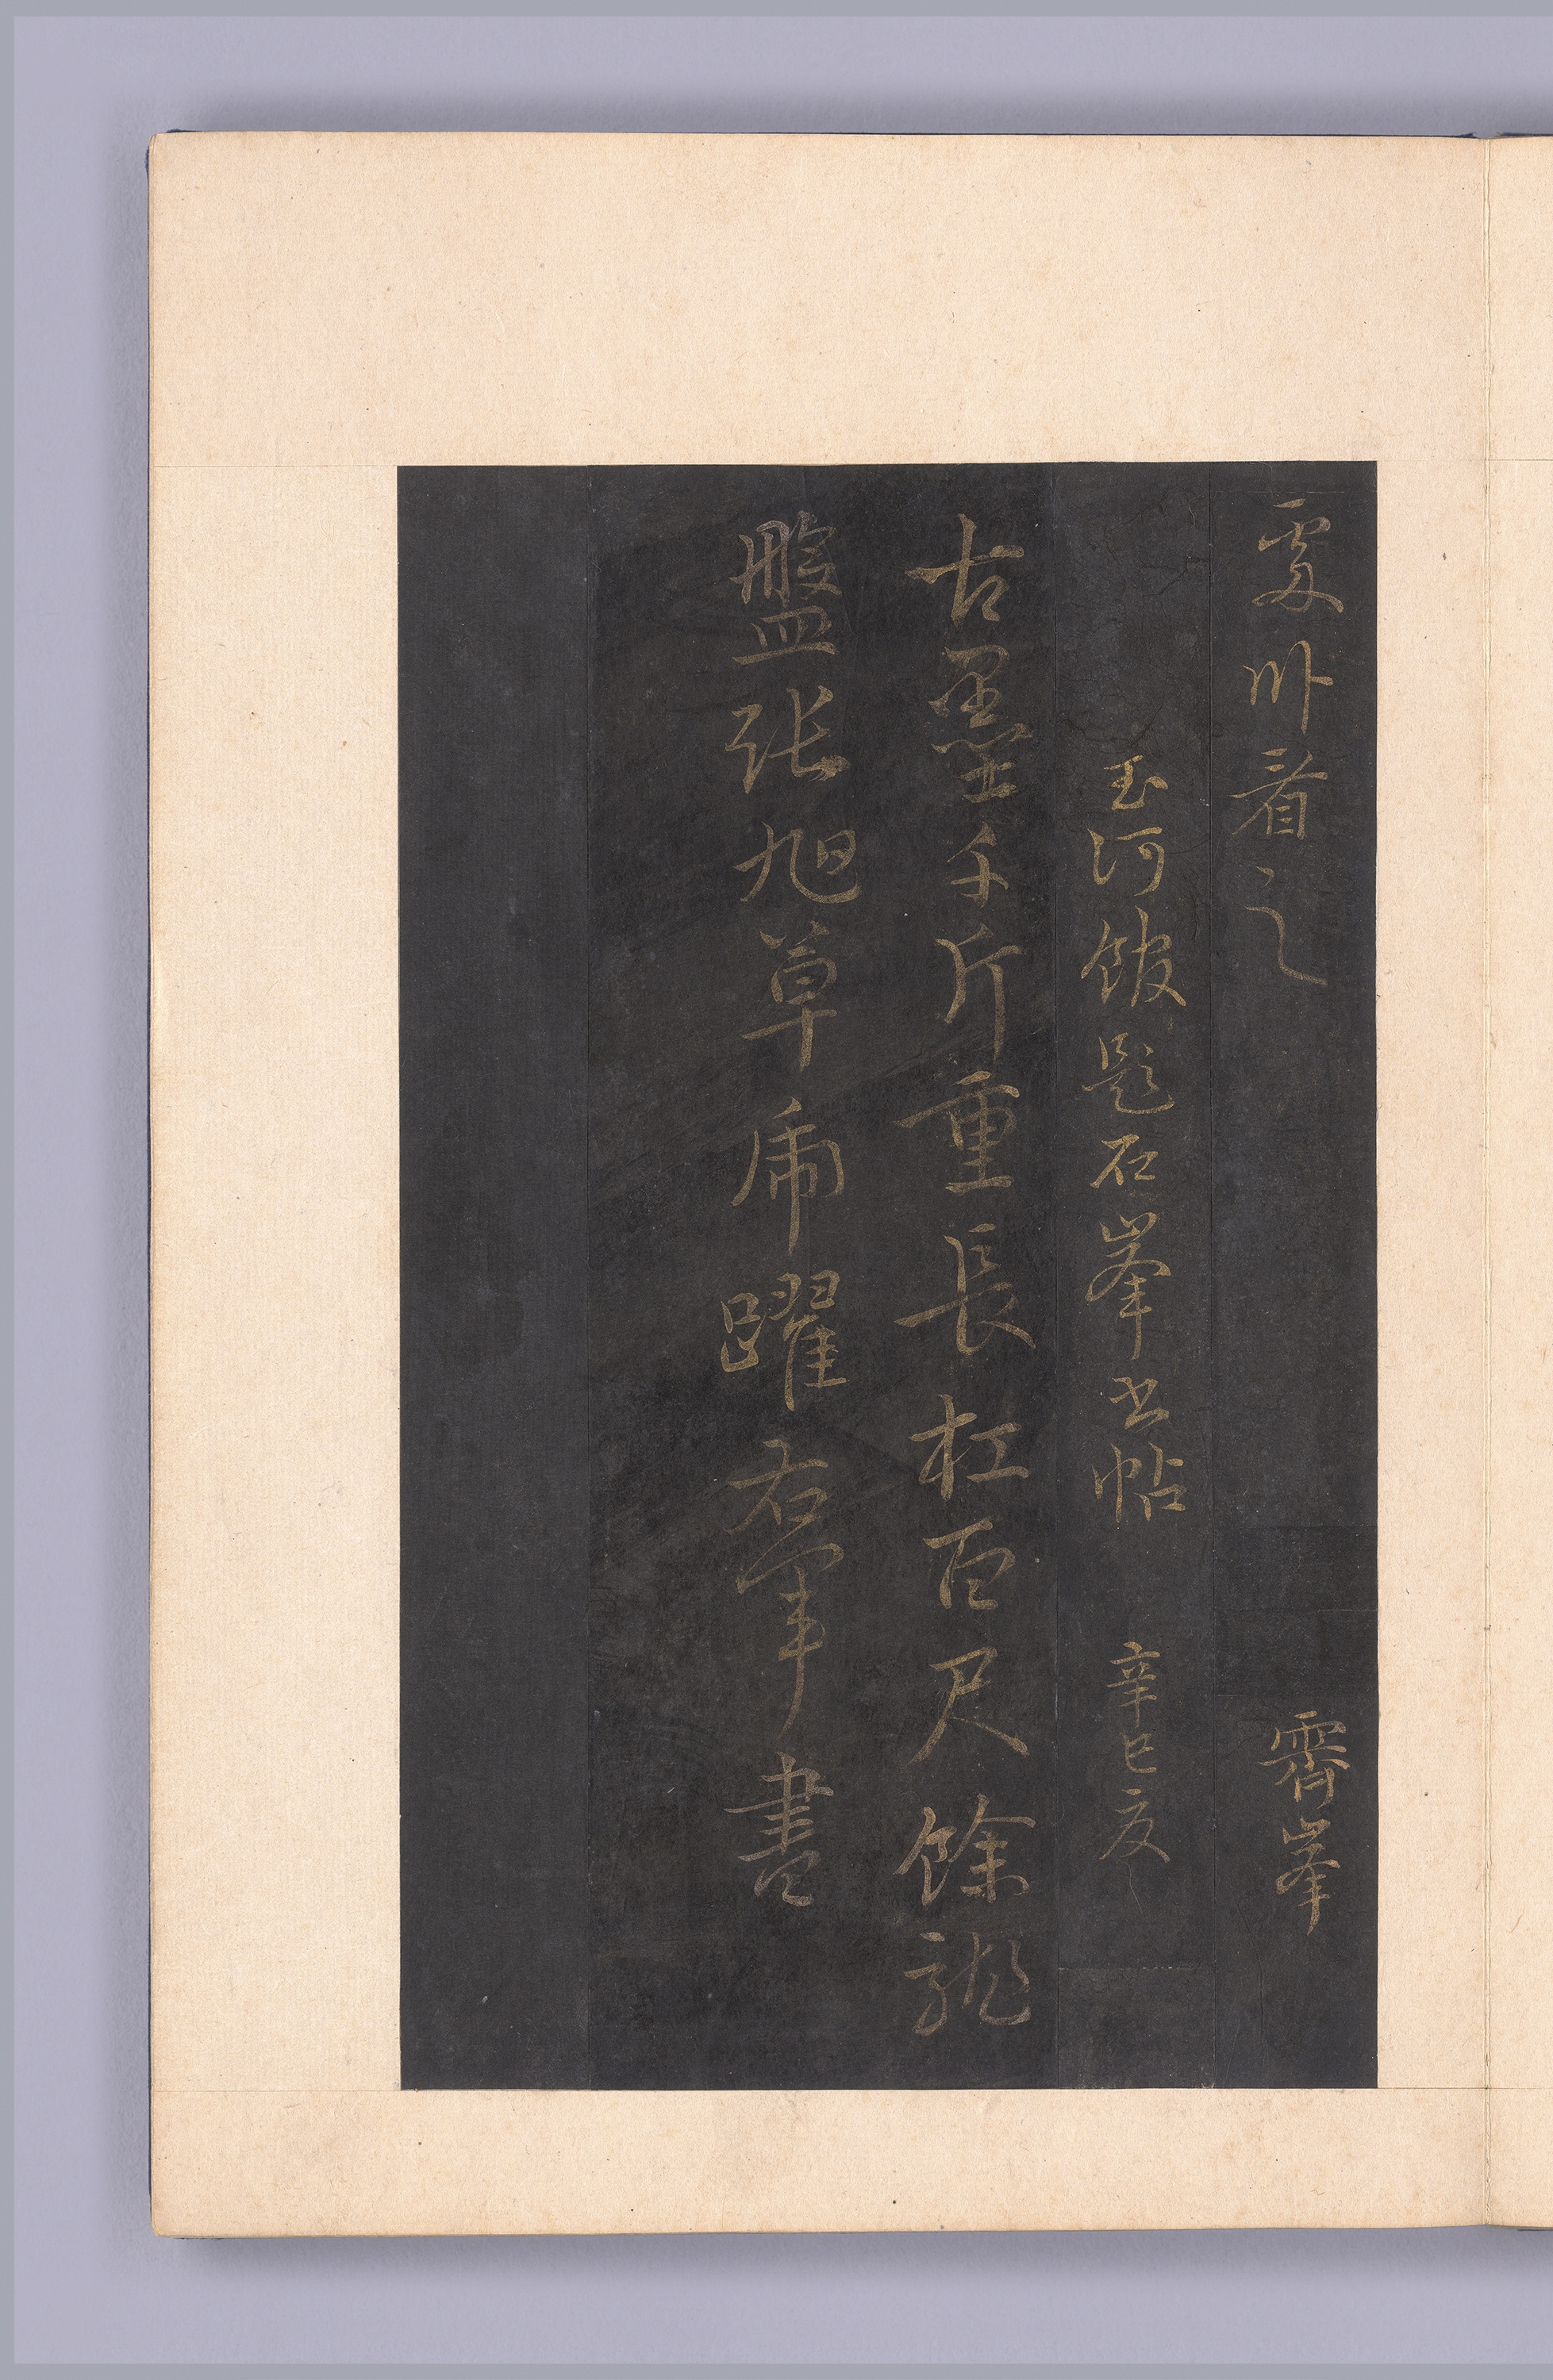 處卧看之　霽峯
玉河館題石峯書帖　辛巳夜
古墨千斤重長杠百尺餘龍
盤張旭草虎躍右軍書